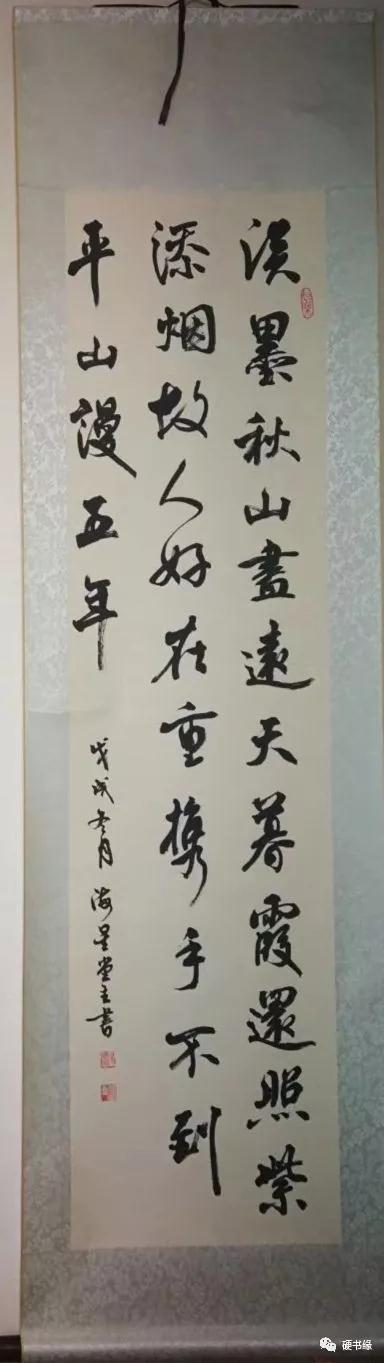 淡墨秋山盡遠天暮霞還照紫
添烟故人好在重携手不到
平山謾五年
戊戌冬月海堂主書
硬书缘